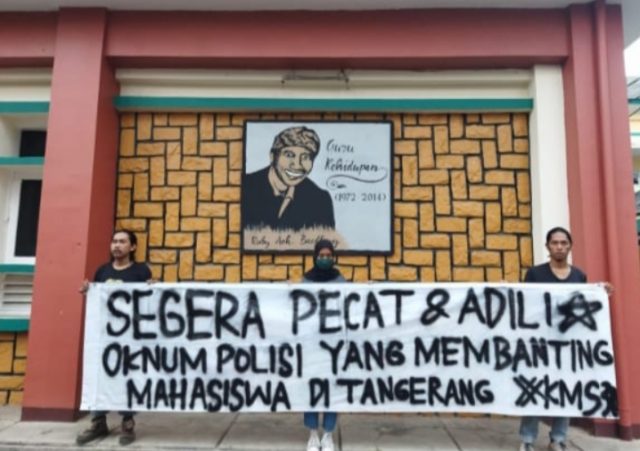 Guru
Kehidupan
(1972 - 2014)
SEGERA PECAT & ADILI
OKNUM POLISI YANG MEMBANTING
MAHASISWA DI TANGERANG KMS